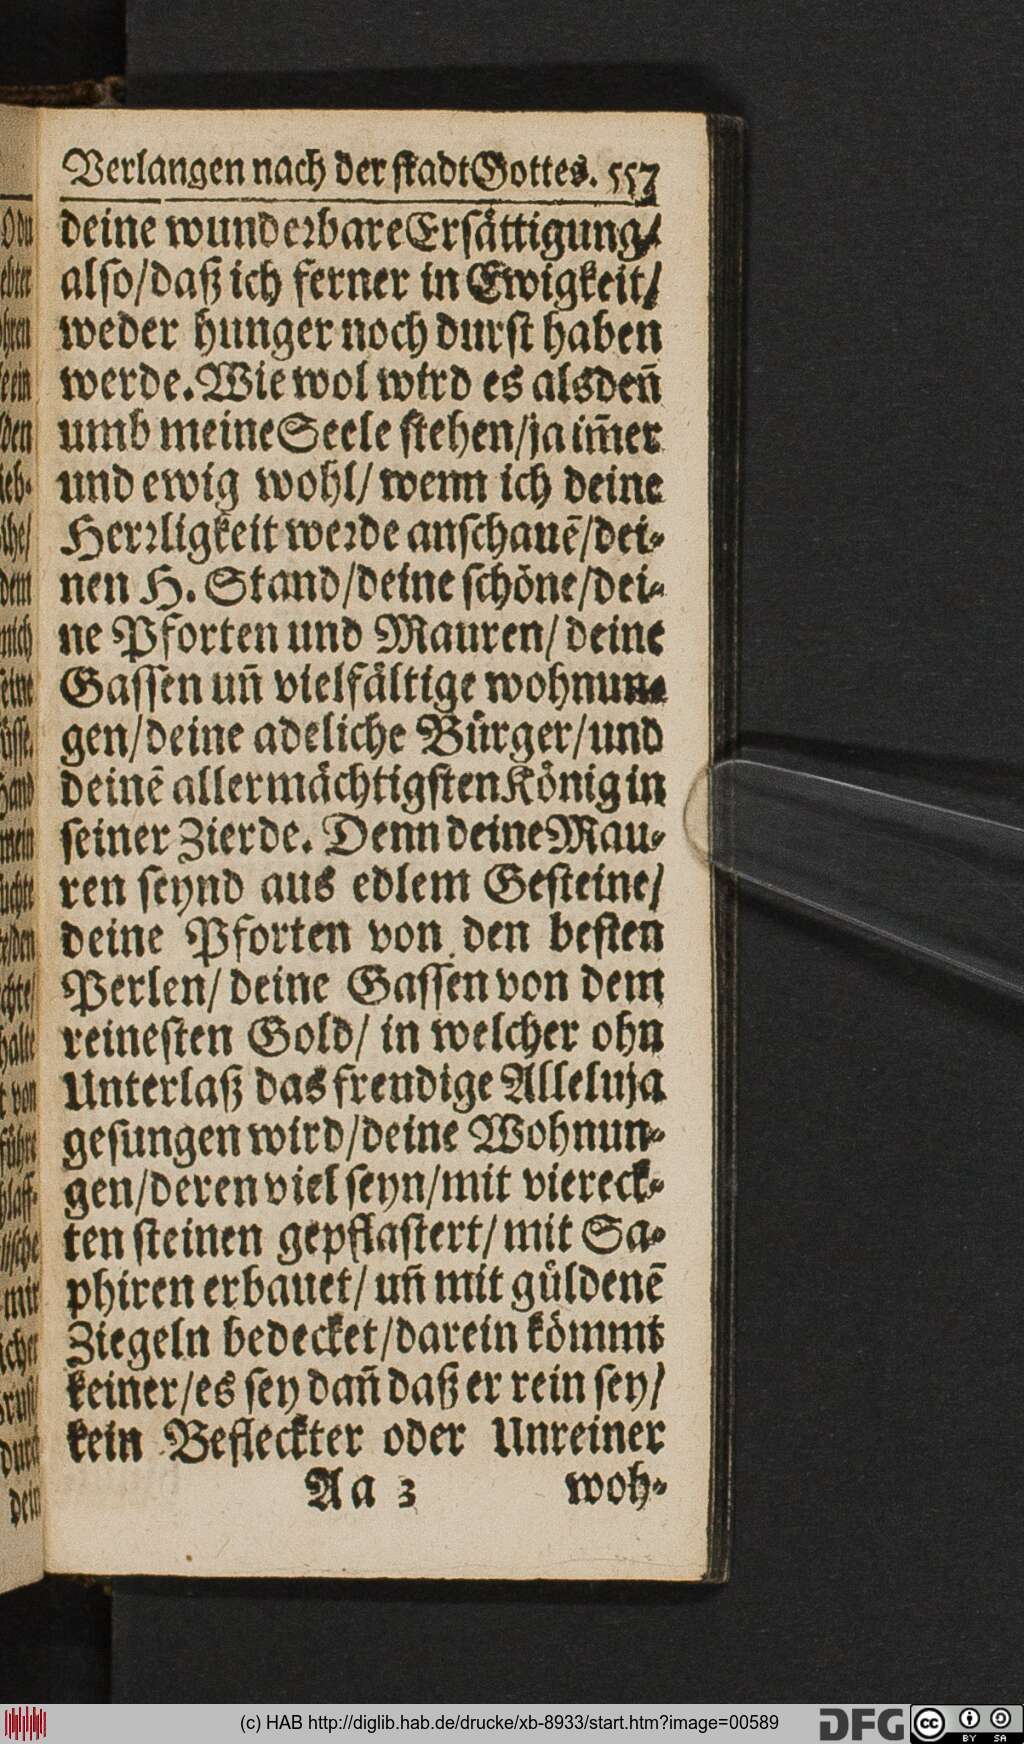 Verlangen nach der stadt Gottes. 557
deine wunderbare Ersättigung/
also/daß ich ferner in Ewigkeit/
weder hunger noch durst haben
werde. Wie wol wird es alsdeñ
umb meine Seele stehen/ja im̃er
und ewig wohl/ wenn ich deine
Herrligkeit werde anschauẽ/dei-
nen H. Stand/deine schöne/dei-
ne Pforten und Mauren/ deine
Gassen uñ vielfältige wohnun-
gen/deine adeliche Bürger/und
deinẽ allermächtigsten König in
seiner Zierde. Denn deine Mau-
ren seynd aus edlem Gesteine/
deine Pforten von den besten
Perlen/ deine Gassen von dem
reinesten Gold/ in welcher ohn
Unterlaß das frendige Alleluja
gesungen wird/deine Wohnun-
gen/deren viel seyn/mit viereck-
ten steinen gepflastert/mit Sa-
phiren erbauet/ uñ mit güldenẽ
Ziegeln bedecket/darein kömmt
keiner/es sey dañ daß er rein sey/
kein Befleckter oder Unreiner
Aa 3 woh-
(c) HAB http://diglib.hab.de/drucke/xb-8933/start.htm?image=00589
DFG cc BY SA